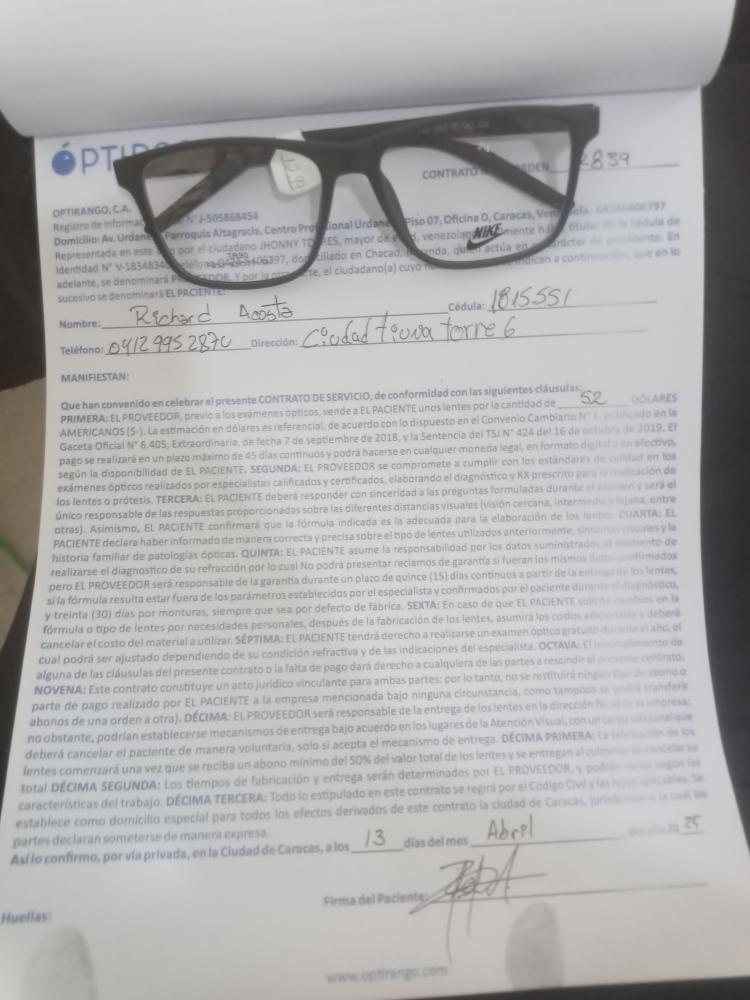 ÓPTIR
CONTRATO ORDEN 2839
OPTIRANGO, C.A.
Registro de Informac N° J-505868454
Domicilio: Av. Urdane Parroquia Altagracia, Centro Pro ional Urdane Piso 07, Oficina D, Caracas, Ven ela. 04246406797
Representada en este por el ciudadano JHONNY TO RES, mayor de e d, venezolan mente há titular de la cédula de
Identidad N° V-1834834 eléfono 6406797, do ciliado en Chacao, anda, qu en actúa en arácter de presidente. En
adelante, se denominará P EDOR. Y por la otr rte, el ciudadano(a) cuyo indican a continuación, que en lo
sucesivo se denominará EL PACIENTE:
NIKE
Nombre: Richard Acosta Cédula: 1815551
Teléfono: 04129952870 Dirección: Ciudad tiuna torre 6
MANIFIESTAN:
Que han convenido en celebrar el presente CONTRATO DE SERVICIO, de conformidad con las siguientes cláusulas:
PRIMERA: EL PROVEEDOR, previo a los exámenes ópticos, vende a EL PACIENTE unos lentes por la cantidad de 52 DÓLARES
AMERICANOS ($-). La estimación en dólares es referencial, de acuerdo con lo dispuesto en el Convenio Cambiario N° 1, publicado en la
Gaceta Oficial N° 6.405, Extraordinaria, de fecha 7 de septiembre de 2018, y la Sentencia del TSJ N° 424 del 16 de octubre de 2019. El
pago se realizará en un plazo máximo de 45 días continuos y podrá hacerse en cualquier moneda legal, en formato digital o en efectivo,
según la disponibilidad de EL PACIENTE. SEGUNDA: EL PROVEEDOR se compromete a cumplir con los estándares de calidad en los
exámenes ópticos realizados por especialistas calificados y certificados, elaborando el diagnóstico y RX prescrito para la realización de
los lentes o prótesis. TERCERA: EL PACIENTE deberá responder con sinceridad a las preguntas formuladas durante el examen y será el
único responsable de las respuestas proporcionadas sobre las diferentes distancias visuales (visión cercana, intermedia y lejana, entre
otras). Asimismo, EL PACIENTE confirmará que la fórmula indicada es la adecuada para la elaboración de los lentes. CUARTA: EL
PACIENTE declara haber informado de manera correcta y precisa sobre el tipo de lentes utilizados anteriormente, síntomas visuales y la
historia familiar de patologías ópticas. QUINTA: EL PACIENTE asume la responsabilidad por los datos suministrados al momento de
realizarse el diagnostico de su refracción por lo cual No podrá presentar reclamos de garantía si fueran los mismos datos confirmados
pero EL PROVEEDOR será responsable de la garantía durante un plazo de quince (15) días continuos a partir de la entrega de los lentes,
si la fórmula resulta estar fuera de los parámetros establecidos por el especialista y confirmados por el paciente durante el diagnóstico,
y treinta (30) días por monturas, siempre que sea por defecto de fábrica. SEXTA: En caso de que EL PACIENTE solicite cambios en la
fórmula o tipo de lentes por necesidades personales, después de la fabricación de los lentes, asumirá los costos adicionales y deberá
cancelar el costo del material a utilizar. SÉPTIMA: EL PACIENTE tendrá derecho a realizarse un examen óptico gratuito durante el año, el
cual podrá ser ajustado dependiendo de su condición refractiva y de las indicaciones del especialista. OCTAVA: El incumplimiento de
alguna de las cláusulas del presente contrato o la falta de pago dará derecho a cualquiera de las partes a rescindir el presente contrato.
NOVENA: Este contrato constituye un acto jurídico vinculante para ambas partes; por lo tanto, no se restituirá ningún tipo de abono o
parte de pago realizado por EL PACIENTE a la empresa mencionada bajo ninguna circunstancia, como tampoco se podrá transferir
abonos de una orden a otra). DÉCIMA: EL PROVEEDOR será responsable de la entrega de los lentes en la dirección fiscal de la empresa;
no obstante, podrían establecerse mecanismos de entrega bajo acuerdo en los lugares de la Atención Visual, con un cargo adicional que
deberá cancelar el paciente de manera voluntaria, solo si acepta el mecanismo de entrega. DÉCIMA PRIMERA: La fabricación de los
lentes comenzará una vez que se reciba un abono mínimo del 50% del valor total de los lentes y se entregan al culminar de cancelar su
total DÉCIMA SEGUNDA: Los tiempos de fabricación y entrega serán determinados por EL PROVEEDOR, y podrán variar según las
características del trabajo. DÉCIMA TERCERA: Todo lo estipulado en este contrato se regirá por el Código Civil y las leyes aplicables. Se
establece como domicilio especial para todos los efectos derivados de este contrato la ciudad de Caracas, jurisdicción a la cual las
partes declaran someterse de manera expresa.
Así lo confirmo, por vía privada, en la Ciudad de Caracas, a los 13 días del mes Abril del año 20 25
Firma del Paciente:
Huellas:
www.optirango.com